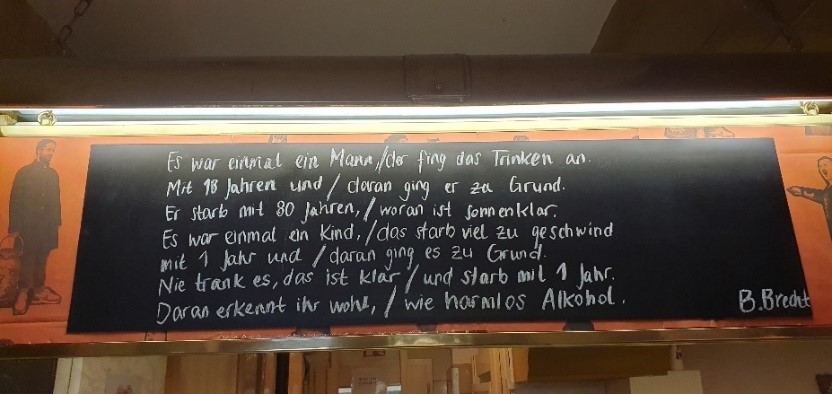 Es war einmal ein Mann, / der fing das Trinken an.
Mit 18 Jahren und / daran ging er zu Grund.
Er starb mit 80 Jahren, / woran ist sonnenklar.
Es war einmal ein Kind, / das starb viel zu geschwind
mit 1 Jahr und / daran ging es zu Grund.
Nie trank es, das ist klar / und starb mit 1 Jahr.
Daran erkennt ihr wohl, / wie harmlos Alkohol.
B.Brecht